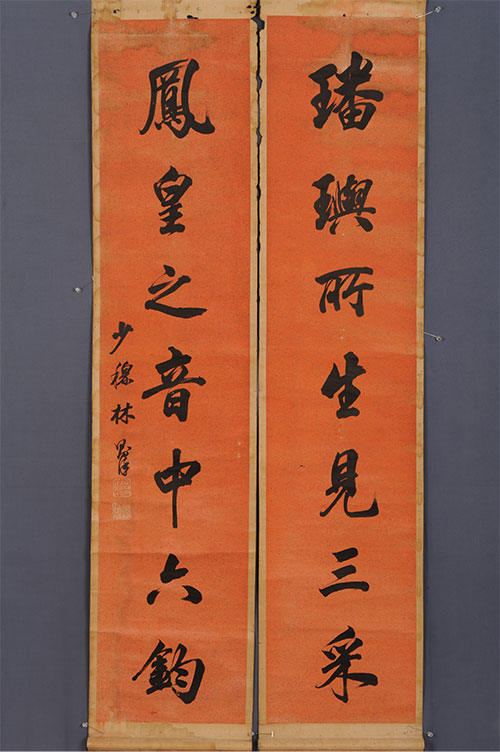 璠璵所生見三采
鳳皇之音中六鈞
少穆林則徐